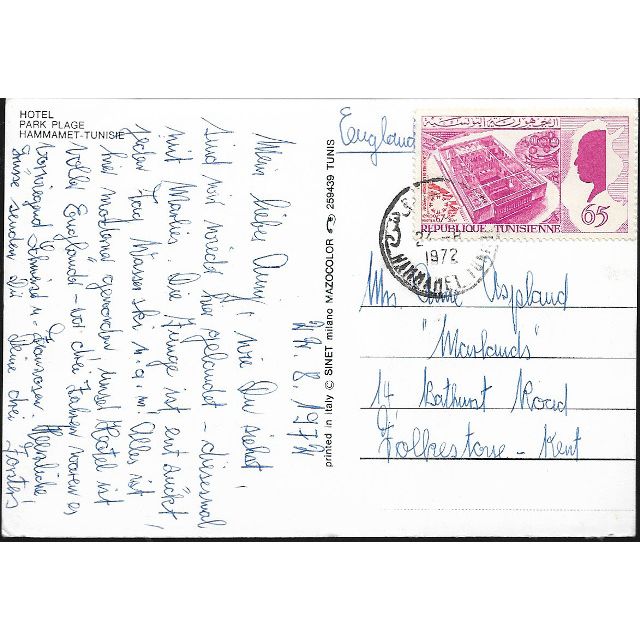 HOTEL
PARK PLAGE
HAMMAMET-TUNISIE
22.8.1972
Mein liebe Anny! wie Du siehst
sind wir wieder hier gelandet - diesesmal
mit Marlis. Die Junge ist entzückt
jeden Tag Wasserski u.s.w! Alles ist
hier moderner geworden! unser Hotel ist
voller Engländer - vor drei Jahren waren es
vorwiegend Schweizer u. Franzosen. Herzliche
Grüsse senden Dir Deine drei
printed in italy © SINET milano MAZOCOLOR 259439 TUNIS
England
الجمهورية التونسية
65
REPUBLIQUE TUNISIENNE
1972
HAMMAMET
Mrs Anne Aspland
"Marlands"
14 Bathurst Road
Folkestone - Kent